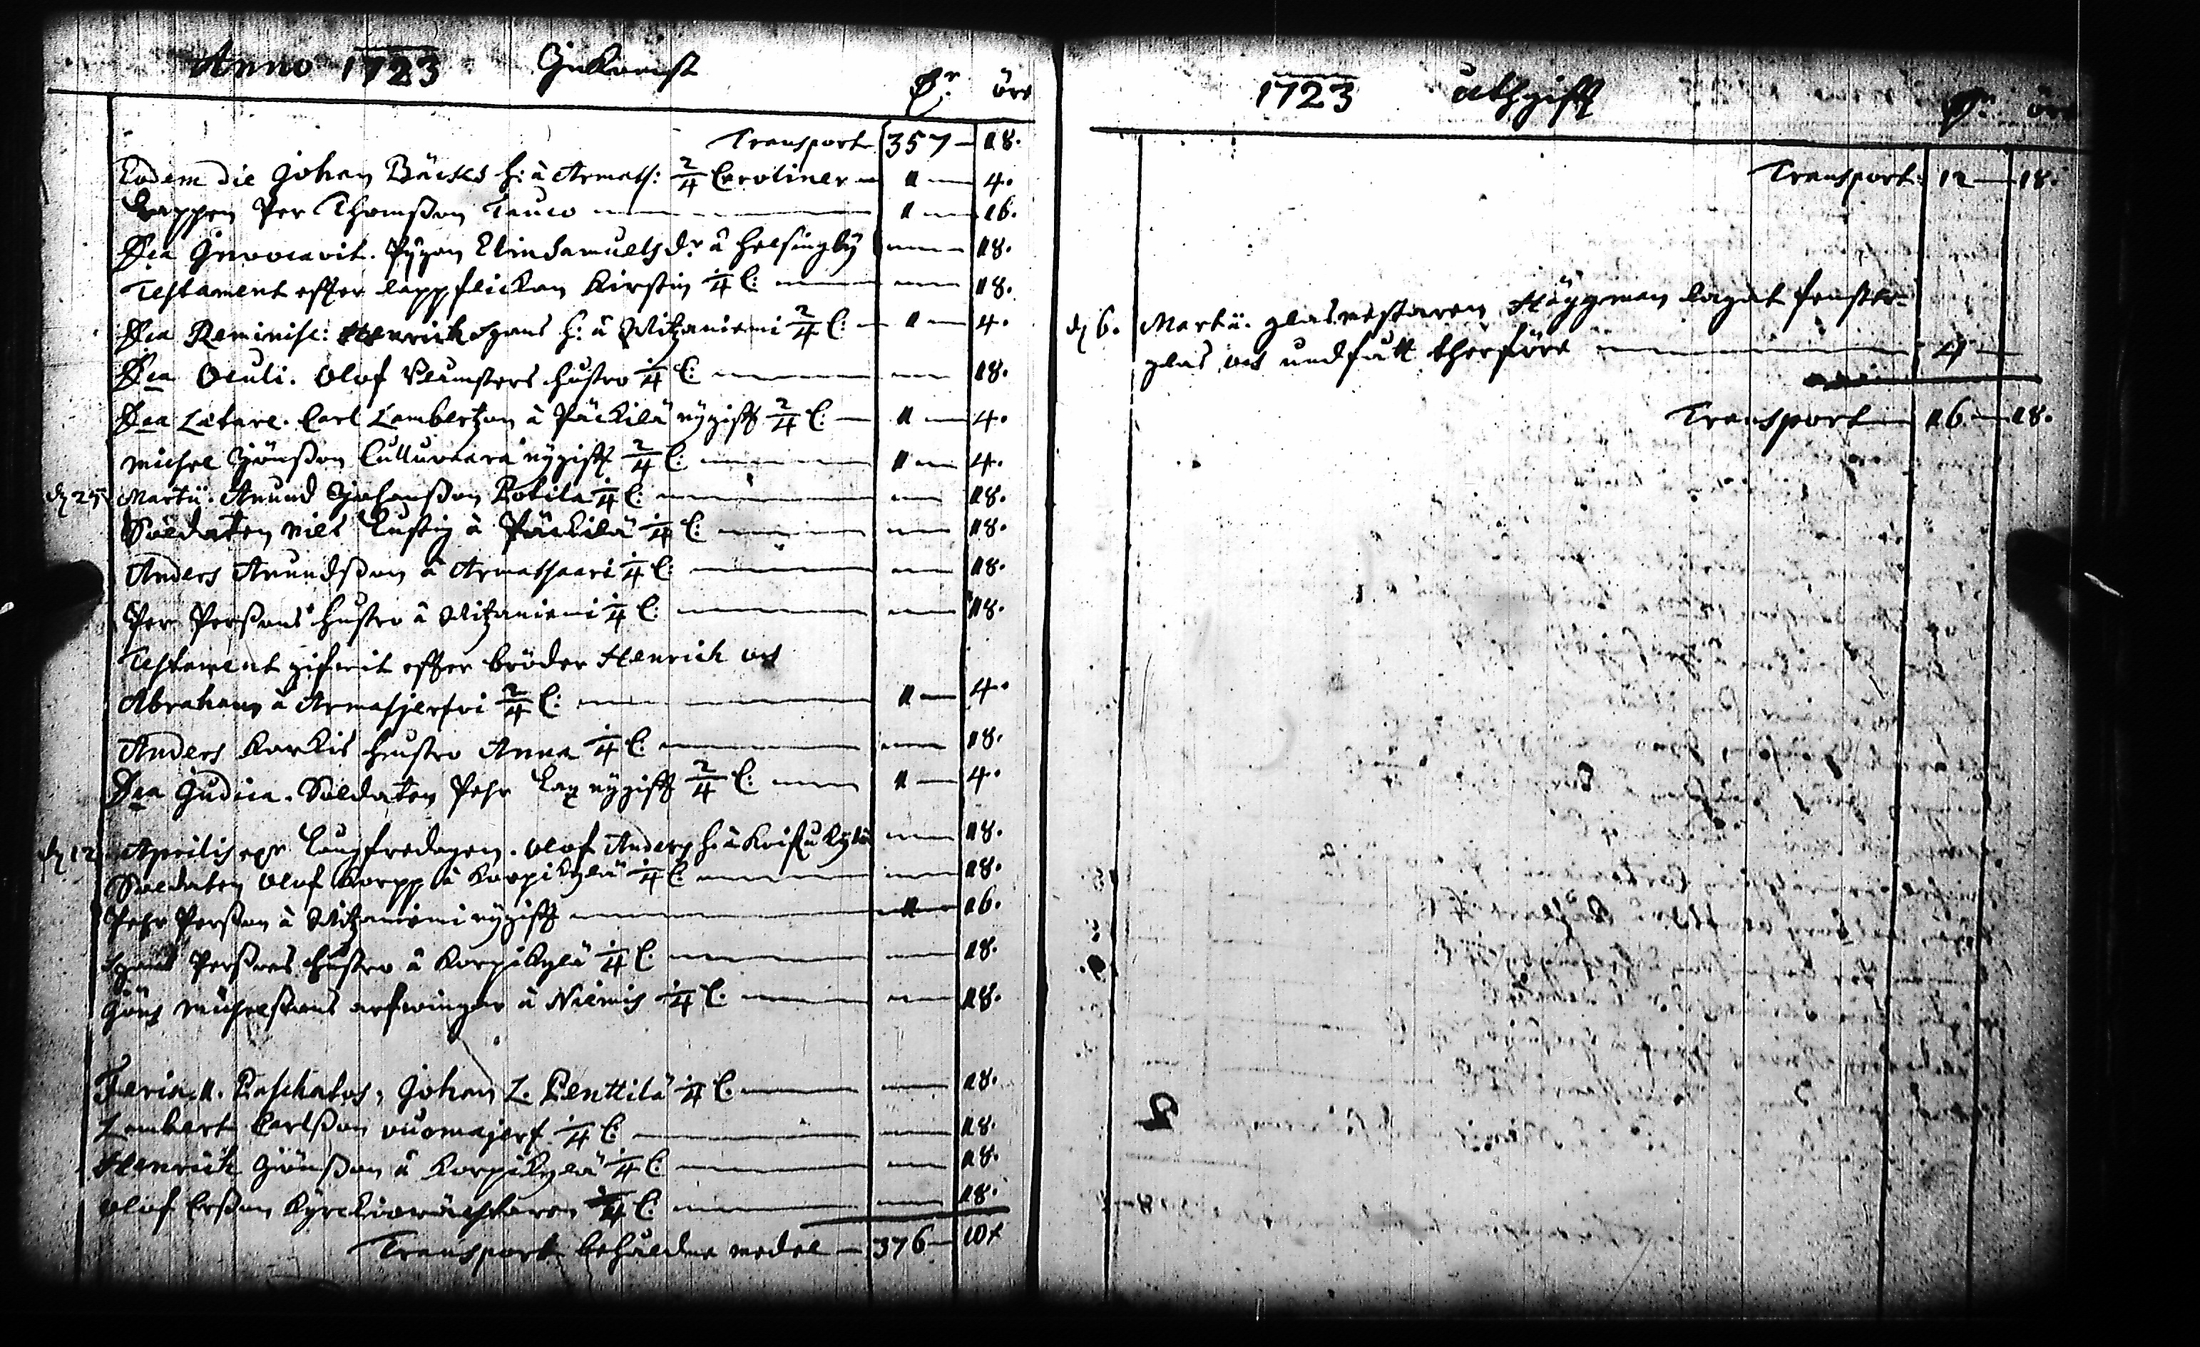 Anno 1723 Inkomst Dr öre
Transport 357 — 18.
Eodem die Johan Bäckes h: à Armas: 2/4 Caroliner — 1 — 4.
Lappen Per Thomsson Tauco — 1 — 16.
Dca Invocavit. Pigan Elin Samuels dr â Helsingby — 18.
Testament effter lappflickan Kirstin 1/4 C: — 18.
Dca Reminisc: Henrich h: â Witzaniemi 2/4 C: — 1 — 4.
Dca Oculi. Olof hustro 1/4 C: — 18.
Dca Lætare. Carl Lambertzon â Päckilä nÿgifft 2/4 C: — 1 — 4.
Michel Jönsson Culluvaara nÿgifft 2/4 C: — 1 — 4.
d. 25 Martii. Anund Johansson 1/4 C: — 18.
Soldaten Nils Lustig â Päckilä 1/4 C: — 18.
Anders Anundsson â Armassaari 1/4 C: — 18.
Per Perssons hustro â Witzaniemi 1/4 C: — 18.
Testament gifwit effter bröder Henrich och
Abraham â Armasjerfvi 2/4 C: — 1 — 4.
Anders Karkis hustro Anna 1/4 C: — 18.
Dca Judica. Soldaten Pehr Lax nÿgifft 2/4 C: — 1 — 4.
d. 12 Aprilis Langfredagen. Olof Anders h: â — 18.
Soldaten Olof Korpp â Korpikylä 1/4 C: — 18.
Pehr Persson â Witzaniemi nÿgifft — 1 — 16.
Perssons hustro â Korpikylä 1/4 C: — 18.
Jöns Michelssons arfwingar â Niemis 1/4 C: — 18.
Feria II. Paschatos, Johan L. Penttilä 1/4 C: — 18.
Lambert Carlsson vuomajerf. 1/4 C: — 18.
Henrich Jönsson â Korpikylä 1/4 C: — 18.
Olof Ersson Kyrckiowächtaren 1/4 C: — 18.
Transport behåldne medel — 376 — 10
1723 uthgifft Dr öre
Transport: 12 — 18.
d. 6. Martii. glasmestaren Häggman lagat fenster-
glas och undfått therföre — 4 —
Transport — 16 — 18.